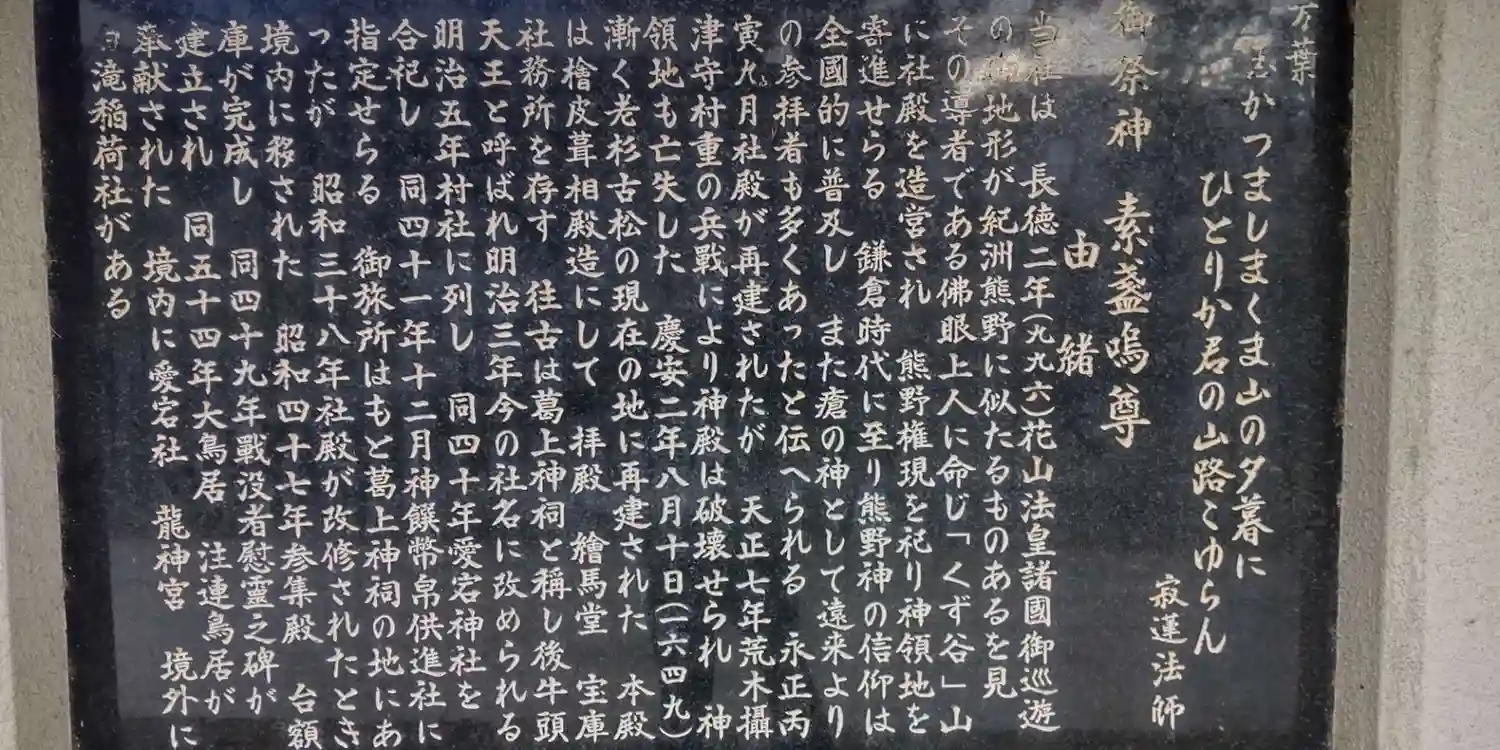 万葉
かつましまくま山の夕暮に
ひとりか君の山路こゆらん
寂蓮法師
御祭神 素盞嗚尊
由緒
当社は 長徳二年(九九六)花山法皇諸國御巡遊
の 地形が紀洲熊野に似たるものあるを見
その導者である佛眼上人に命じ「くず谷」山
に社殿を造営され 熊野権現を祀り神領地を
寄進せらる 鎌倉時代に至り熊野神の信仰は
全國的に普及し また瘡の神として遠来より
の参拝者も多くあったと伝へられる 永正丙
寅九月社殿が再建されたが 天正七年荒木攝
津守村重の兵戰により神殿は破壊せられ 神
領地も亡失した 慶安二年八月十日(一六四九)
漸く老杉古松の現在の地に再建された 本殿
は檜皮葺相殿造にして 拝殿 繪馬堂 宝庫
社務所を存す 往古は葛上神祠と稱し後牛頭
天王と呼ばれ明治三年今の社名に改められる
明治五年村社に列し 同四十年愛宕神社を
合祀し 同四十一年十二月神饌幣帛供進社に
指定せらる 御旅所はもと葛上神祠の地にあ
ったが 昭和三十八年社殿が改修されたとき
境内に移された 昭和四十七年参集殿 台額
庫が完成し 同四十九年戰没者慰霊之碑が
建立され 同五十四年大鳥居 注連鳥居が
奉献された 境内に愛宕社 龍神宮 境外に
滝稲荷社がある